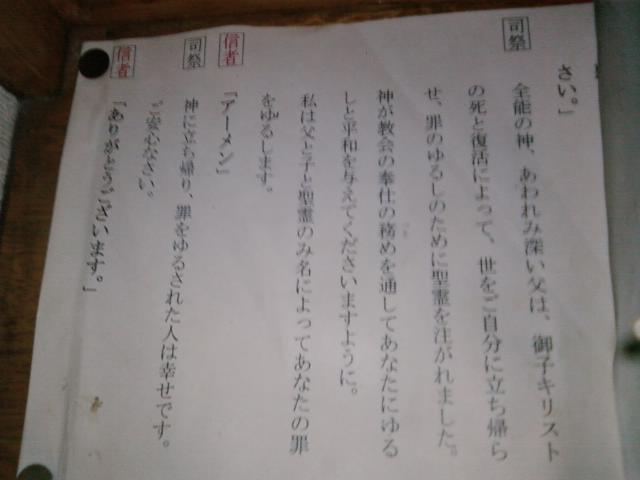 さい。」
司祭
全能の神、あわれみ深い父は、御子キリスト
の死と復活によって、世をご自分に立ち帰ら
せ、罪のゆるしのために聖霊を注がれました。
神が教会の奉仕の務めを通してあなたにゆる
しと平和を与えてくださいますように。
私は父と子と聖霊のみ名によってあなたの罪
をゆるします。
信者
「アーメン」
司祭
神に立ち帰り、罪をゆるされた人は幸せです。
ご安心なさい。
信者
「ありがとうございます。」